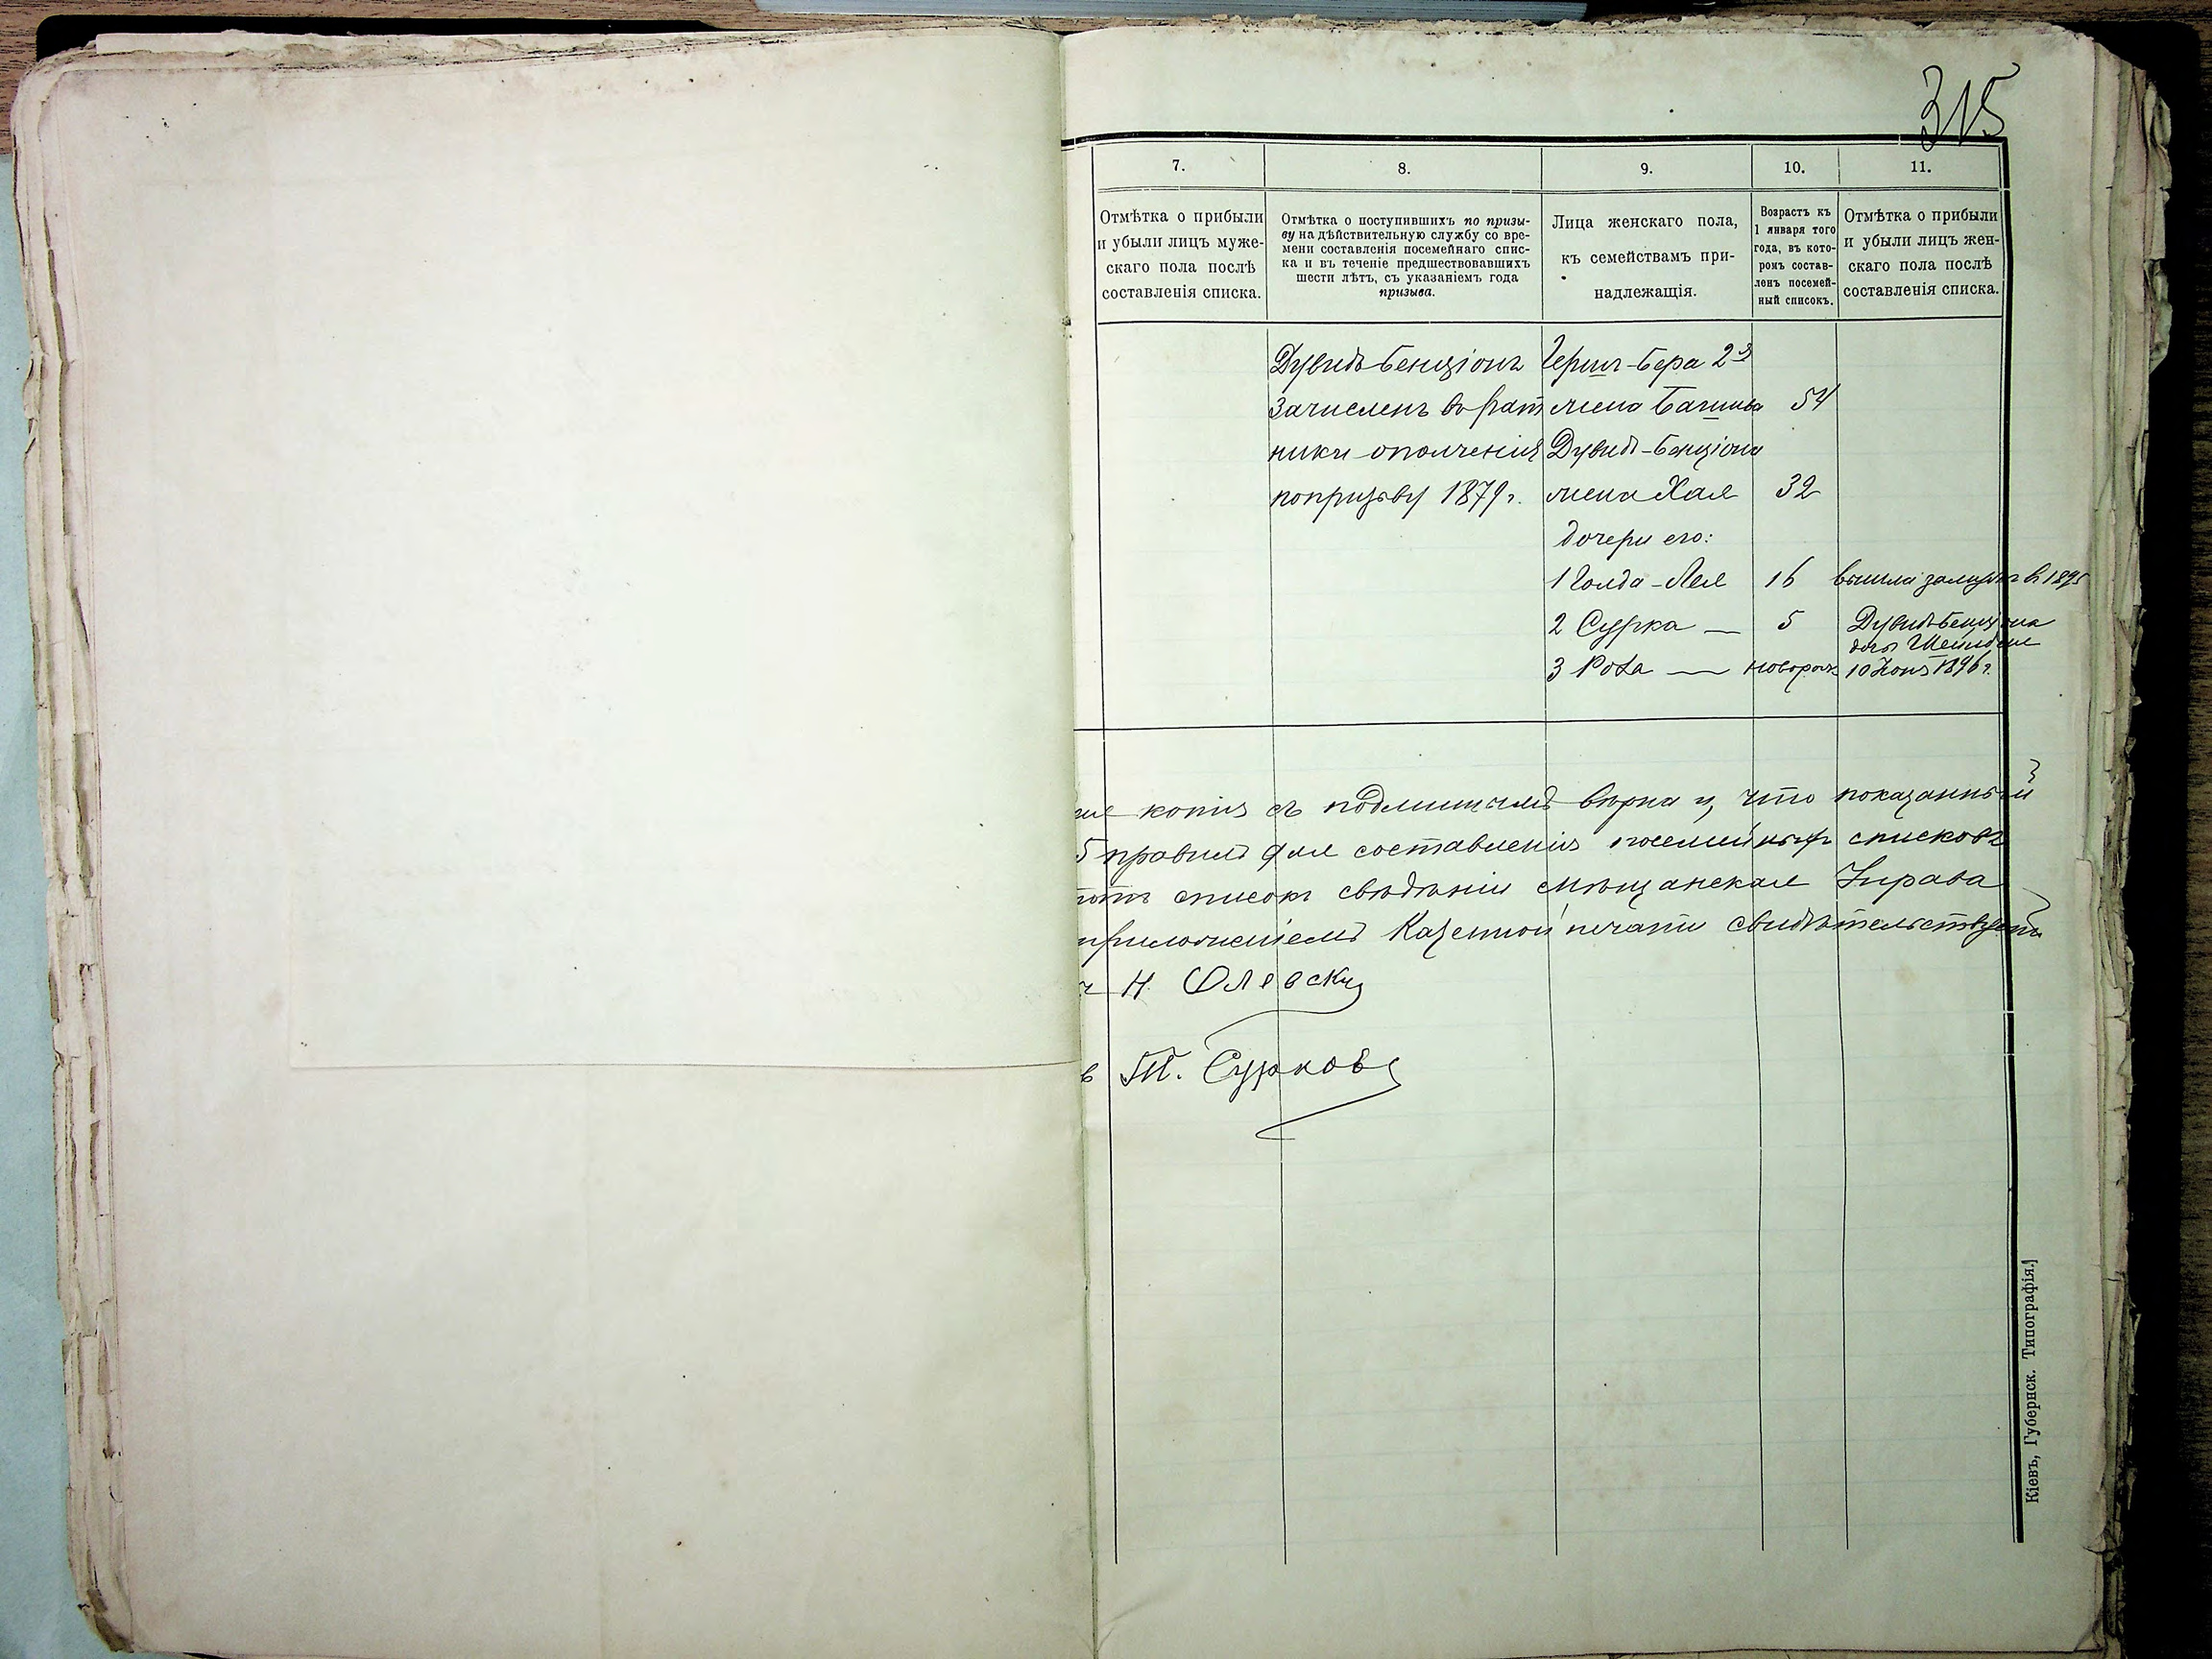 315
7. 8. 9. 10. 11.
Отмѣтка о прибыли
и убыли лицъ муже-
скаго пола послѣ
составленія списка.
Отмѣтка о поступившихъ по призы-
ву на дѣйствительную службу со вре-
мени составленія посемейнаго спис-
ка и въ теченіе предшествовавшихъ
шести лѣтъ, съ указаніемъ года
призыва.
Лица женскаго пола,
къ семействамъ при-
надлежащія.
Возрастъ къ
1 января того
года, въ кото-
ромъ состав-
ленъ посемей-
ный списокъ.
Отмѣтка о прибыли
и убыли лицъ жен-
скаго пола послѣ
составленія списка.
Дувидъ-Бенціонъ
Зачисленъ въ рат
ники ополченія
попризыву 1879 г.
Герш-Бера 2й
жена Башива 54
Дувид-Бенціона
жена Хая 32
дочери его:
1 Голда-Лея 16 вышла замужъ в 1895
2 Сурка — 5
3 Роза — новорож
Дувидъ Бенціона
дочь
10 Іюня 1896 г.
копія съ подлиннымъ вѣрна и, что показанный
5 правилъ для составленія посемейныхъ списковъ
списокъ свѣдѣнія мѣщанская Управа
приложеніемъ Казенной печати свидѣтельствуетъ
Н. Олевскій
в М. Сурков
Кіевъ, Губернск. Типографія.